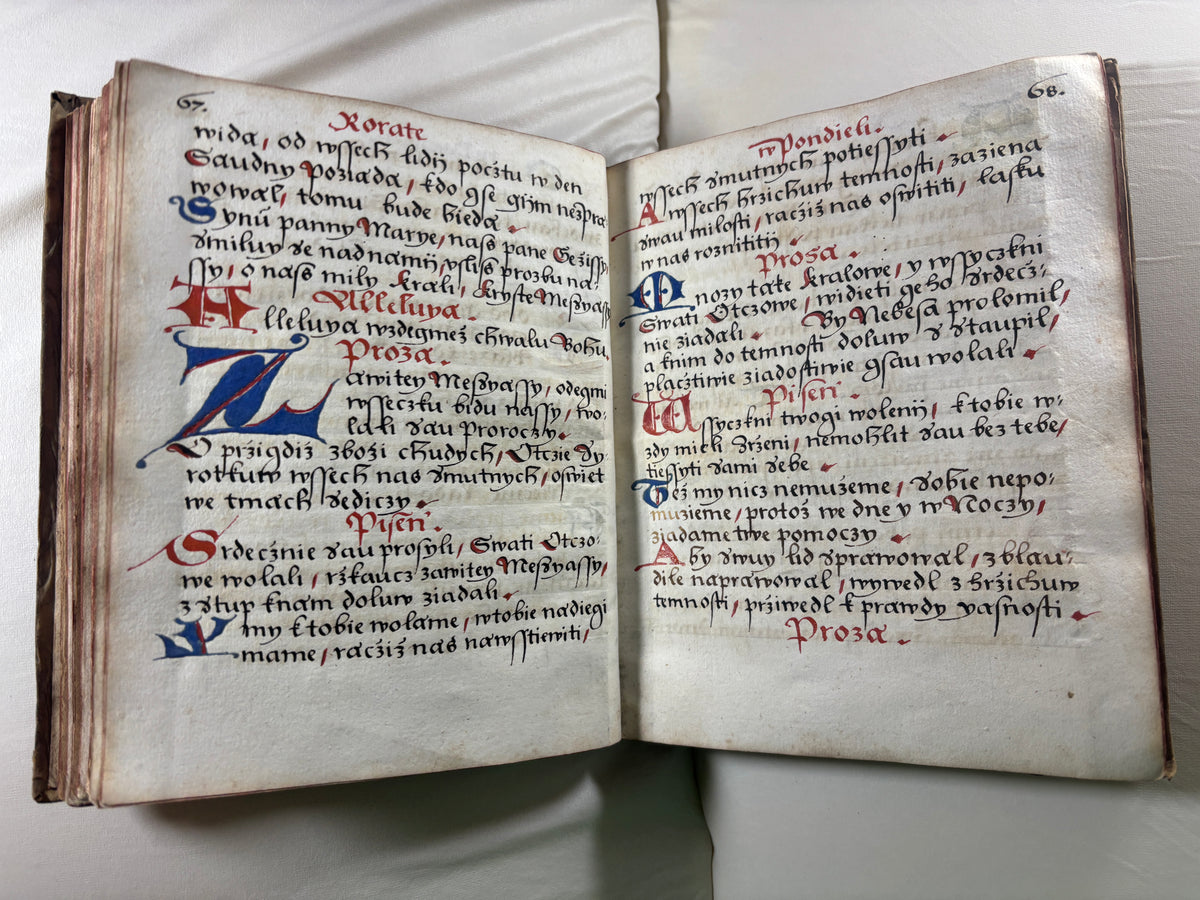 67.
Rorate
wida, od wssech lidij pocżtu w den
Saudny Pożada, kdo gse gijm nežpra-
wowal, tomu bude bieda.
Synu panny Marye, nass pane Gežissy,
smiluy se nad namij, vsliss prozbu na-
ssy, o nass mily krali, kryste Mesyassy
Alleluya.
Alleluya wzdegmež chwalu Bohu,
Proza.
Zawitey Mesyassy, odegmi
wsseczku bidu nassy, wo-
lali sau Proroczy.
O pržigdiž zboži chudych, Otczie sy-
rotkuw wssech nas smutnych, oswiet
we tmach sediczy.
Piseň.
Srdecžnie sau prosyli, Swati Otczo-
we wolali, ržkaucz zawitey Mesyassy,
z stup k nam doluw ziadali.
Y my k tobie wolame, w tobie nadiegi
mame, racžiž nas nawsstiewiti,
68.
w Pondieli.
wssech smutnych potiessyti
A wssech hržichuw temnosti, zažena
swau milosti, racžiž nas oswititi, lasku
w nas roznititij
Prosa.
Mnozy take kralowe, y wssyczkni
Swati Otczowe, widieti geho srdecž-
nie ziadali. By Nebesa prolomil,
a knim do temnosti doluw s staupil,
placžtiwie ziadostiwie gsau wolali
Piseň.
Wssyczkni twogi wolenij, k tobie w-
zdy mieli Zrženi, nemohlit sau bez tebe,
tiessyti sami sebe
Též my nicz nemužeme, sobie nepo-
mužieme, protož we dne y w Noczy,
ziadame twe pomoczy
Aby swuy lid sprawowal, z blau-
dile naprawowal, wywedl z hržichuw
temnosti, pržiwedl k prawdy yasnosti
Proza.